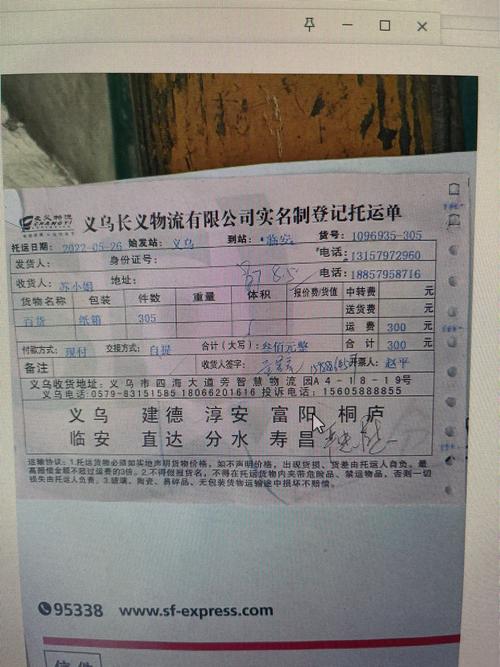 长义物流
CHANGYI
义乌长义物流有限公司实名制登记托运单
托运日期: 2022-05-26 始发站: 义乌 到站: 临安 货号: 1096935-305
发货人: 身份证号: 电话: 13157972960
收货人: 苏小姐 地址: 电话: 18857958716
货物名称 包装 件数 重量 体积 报价费/货值 中转费 元
百货 纸箱 305 送货费 元
运 费 300 元
付款方式: 现付 交接方式: 自提 合计(大写): 叁佰元整 合 计 300 元
备注 收货人签字: 开票人: 赵平
义乌收货地址: 义乌市四海大道旁智慧物流园A4-18-19号
义乌电话:0579-83151585 18066201616 投诉电话: 15605888855
义乌 建德 淳安 富阳 桐庐
临安 直达 分水 寿昌
运输协议: 1.托运货物必须如实地声明货物价格, 如不声明价格, 出现货损、货差由托运人自负。最
高赔偿金额不超过运费的3倍。2.不得假报货名, 不得在托运货物内夹带危险品、禁运物品, 否则一切
损失由托运人负责。3.玻璃、陶瓷、易碎品、无包装货物运输途中损坏不赔偿。
95338 www.sf-express.com